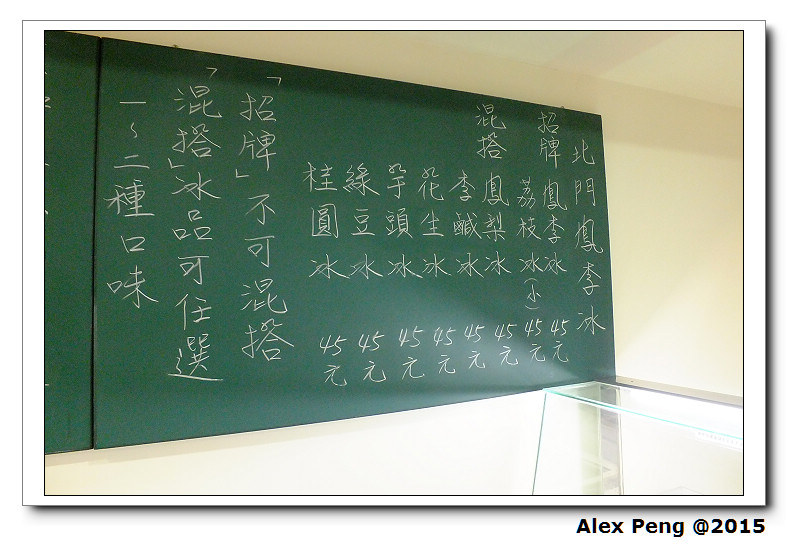 北門鳳李冰
招牌 鳳李冰 45元
荔枝冰(小) 45元
混搭 鳳梨冰 45元
李鹹冰 45元
花生冰 45元
芋頭冰 45元
綠豆冰 45元
桂圓冰 45元
「招牌」不可混搭
「混搭」冰品可任選
一~二種口味
Alex Peng @2015